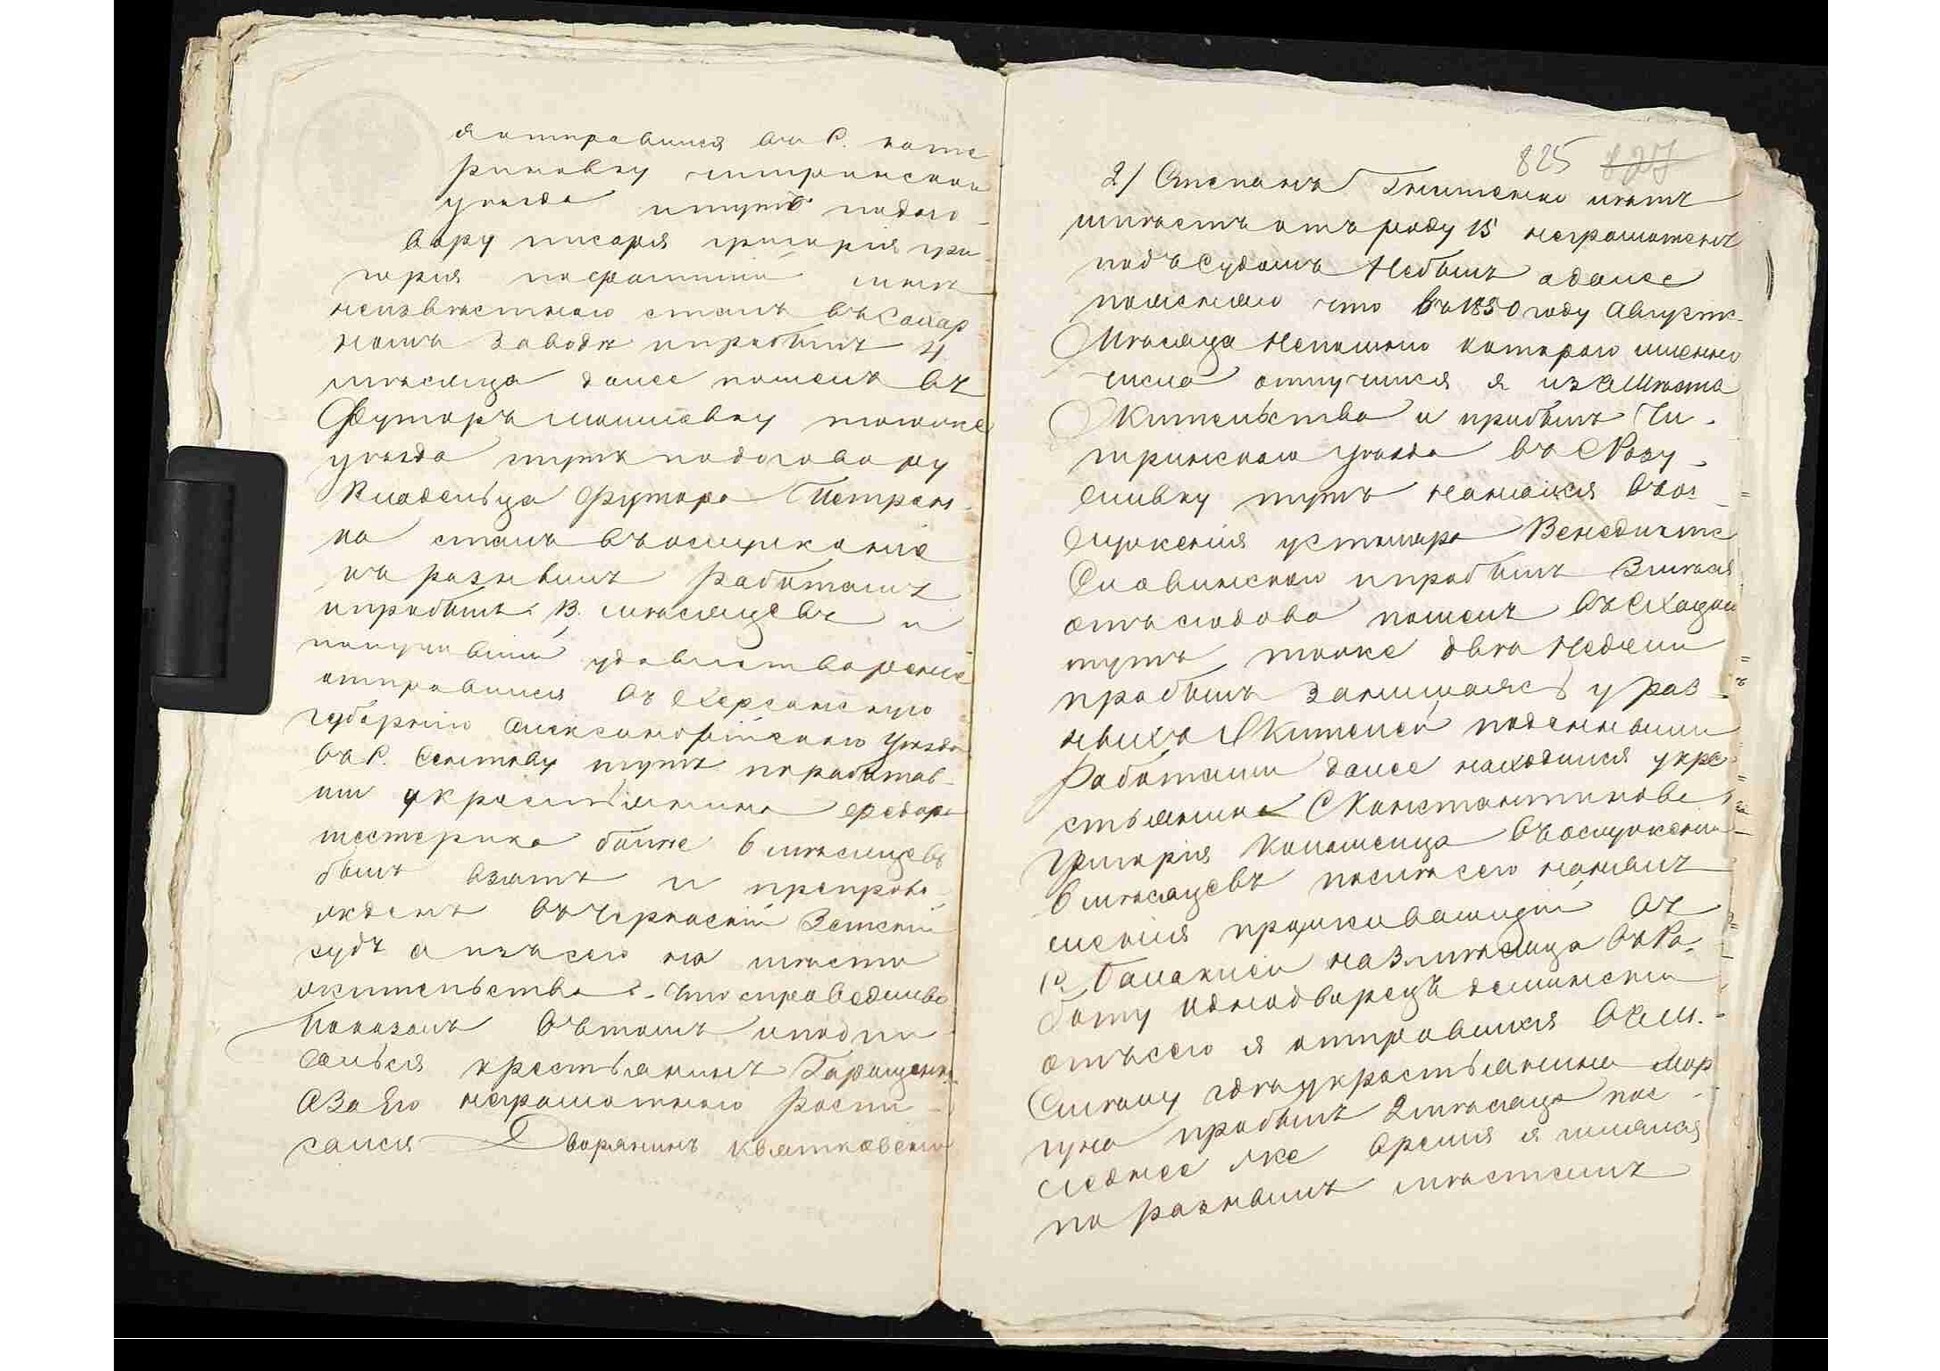 я отправился въ С. кате
риновку читринскаго
уезда итутъ подого
вору писаря григорія гри
горія пофамиліи мнѣ
неизвѣстнаго сталъ въ Сахар
номъ заводѣ ипробылъ 4
мѣсяца далее пошелъ въ
Футоръ тогоже
уѣзда тутъ подоговору
Владельца футора Петрен
ка сталъ въ услуженіе
къ разнымъ работамъ
ипробылъ 3. мѣсяцевъ и
получивши удовлетвореніе
отправился въ Херсонскую
губернію александрійскаго уѣзда
въ С. Сентову тутъ поработав
ши укрестьянина федора
шестерика более 6 мѣсяцевъ
былъ взятъ и препрово
жденъ въ Черкаскій Земскій
судъ а изъ сего на мѣсто
жительства. Что справедливо
показалъ въ томъ иподпи
сался крестьянинъ Геращенко
А За Его неграмотнаго роспи
сался Дворянинъ Квятковскій
825 827
2) Степанъ Гнитенко имѣтъ
отъ роду 15 неграмотенъ
подъ судомъ Небылъ адалее
поясняю что въ 1850 году Августа
Мѣсяца Непомню котораго именно
числа отлучился я изъ Мѣста
Жительства и прибылъ Чи
гринскаго уѣзда въ С Розу
миовку тутъ нанялся въ ус
луженія Венедикта
ипробылъ 3 мѣсяца
отъ сюдова пошелъ въ
тутъ тоже двѣ Недели
пробылъ занимаясь у раз
ныхъ Жителей поденными
Работами далее находился укре
стьянина С Константинове
Григорія въ услуженіи
6 мѣсяцевъ послѣ сего нанялъ
меня проживающій въ
на 3 мѣсяца въ Ра
боту Однодворецъ
отъ сего я отправился въ м.
Смѣлу гдѣ укрестьянина Мар
гуна пробылъ 2 мѣсяца пос
леднее же время я шлялся
по разнымъ мѣстамъ